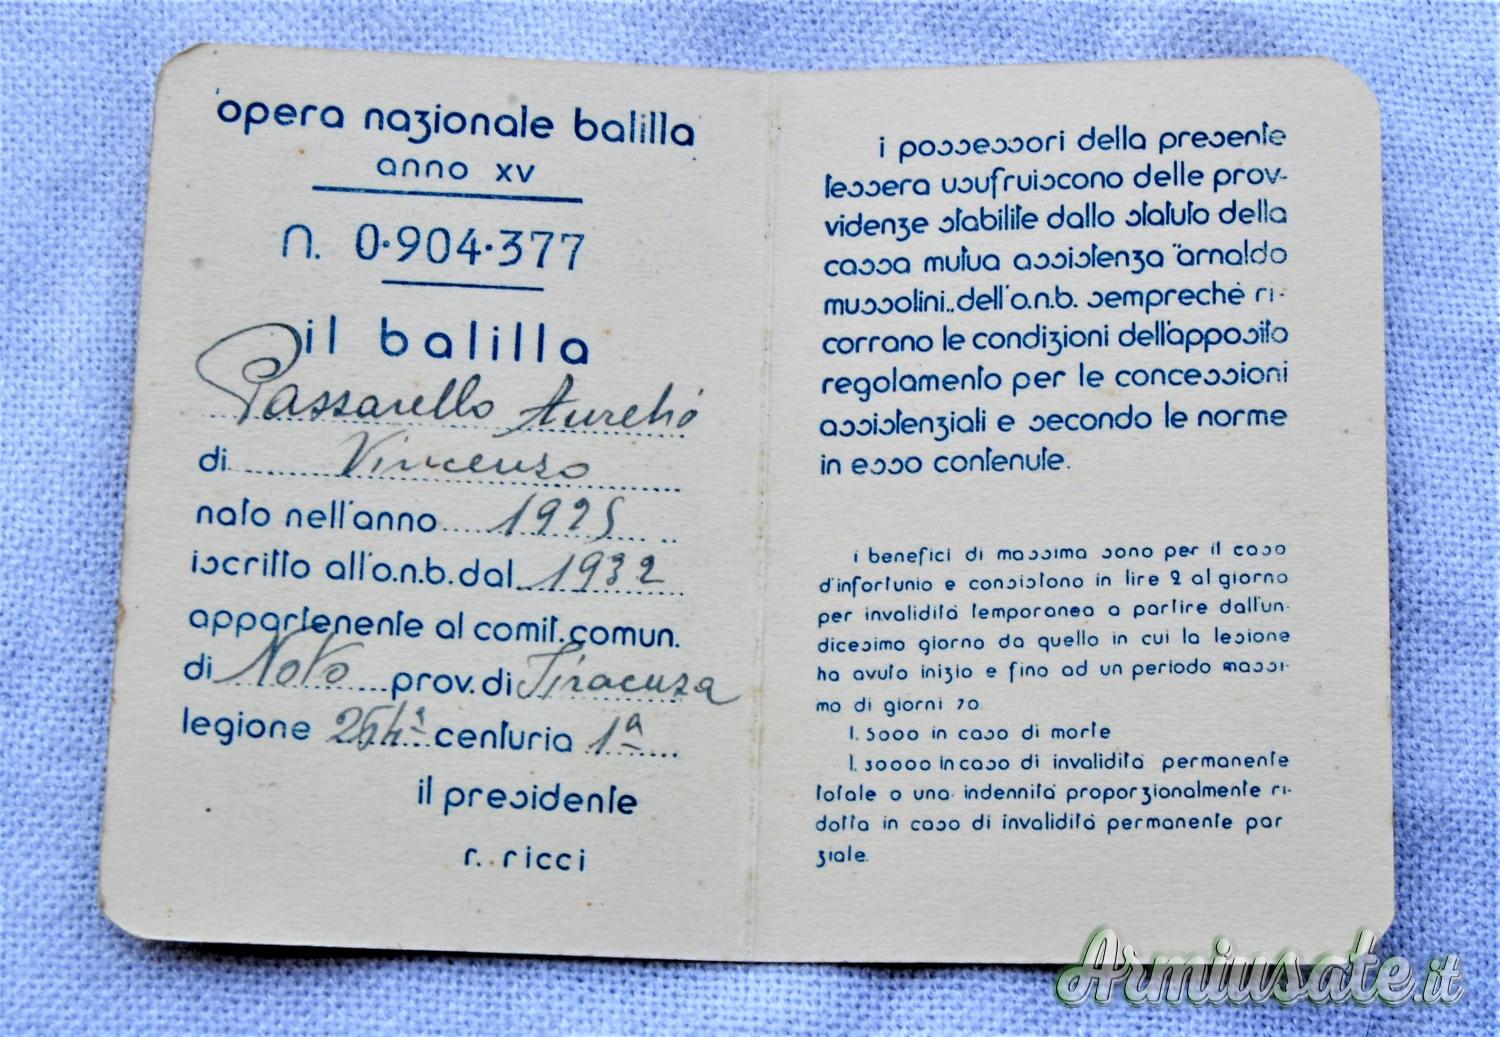 opera nazionale balilla
anno xv
n. 0.904.377
il balilla
Passarello Aurelio
di Vincenzo
nato nell'anno 1925
iscritto all'o.n.b. dal 1932
appartenente al comit. comun.
di Noto prov. di Siracusa
legione 264ª centuria 1ª
il presidente
r. ricci
i possessori della presente
tessera usufruiscono delle prov-
videnze stabilite dallo statuto della
cassa mutua assistenza "arnaldo
mussolini,, dell'o.n.b. sempreché ri-
corrano le condizioni dell'apposito
regolamento per le concessioni
assistenziali e secondo le norme
in esso contenute.
i benefici di massima sono per il caso
d'infortunio e consistono in lire 2 al giorno
per invalidità temporanea a partire dall'un-
dicesimo giorno da quello in cui la lesione
ha avuto inizio e fino ad un periodo massi-
mo di giorni 70.
l. 5000 in caso di morte
l. 30000 in caso di invalidità permanente
totale o una indennità proporzionalmente ri-
dotta in caso di invalidità permanente par
ziale.
Armiusate.it